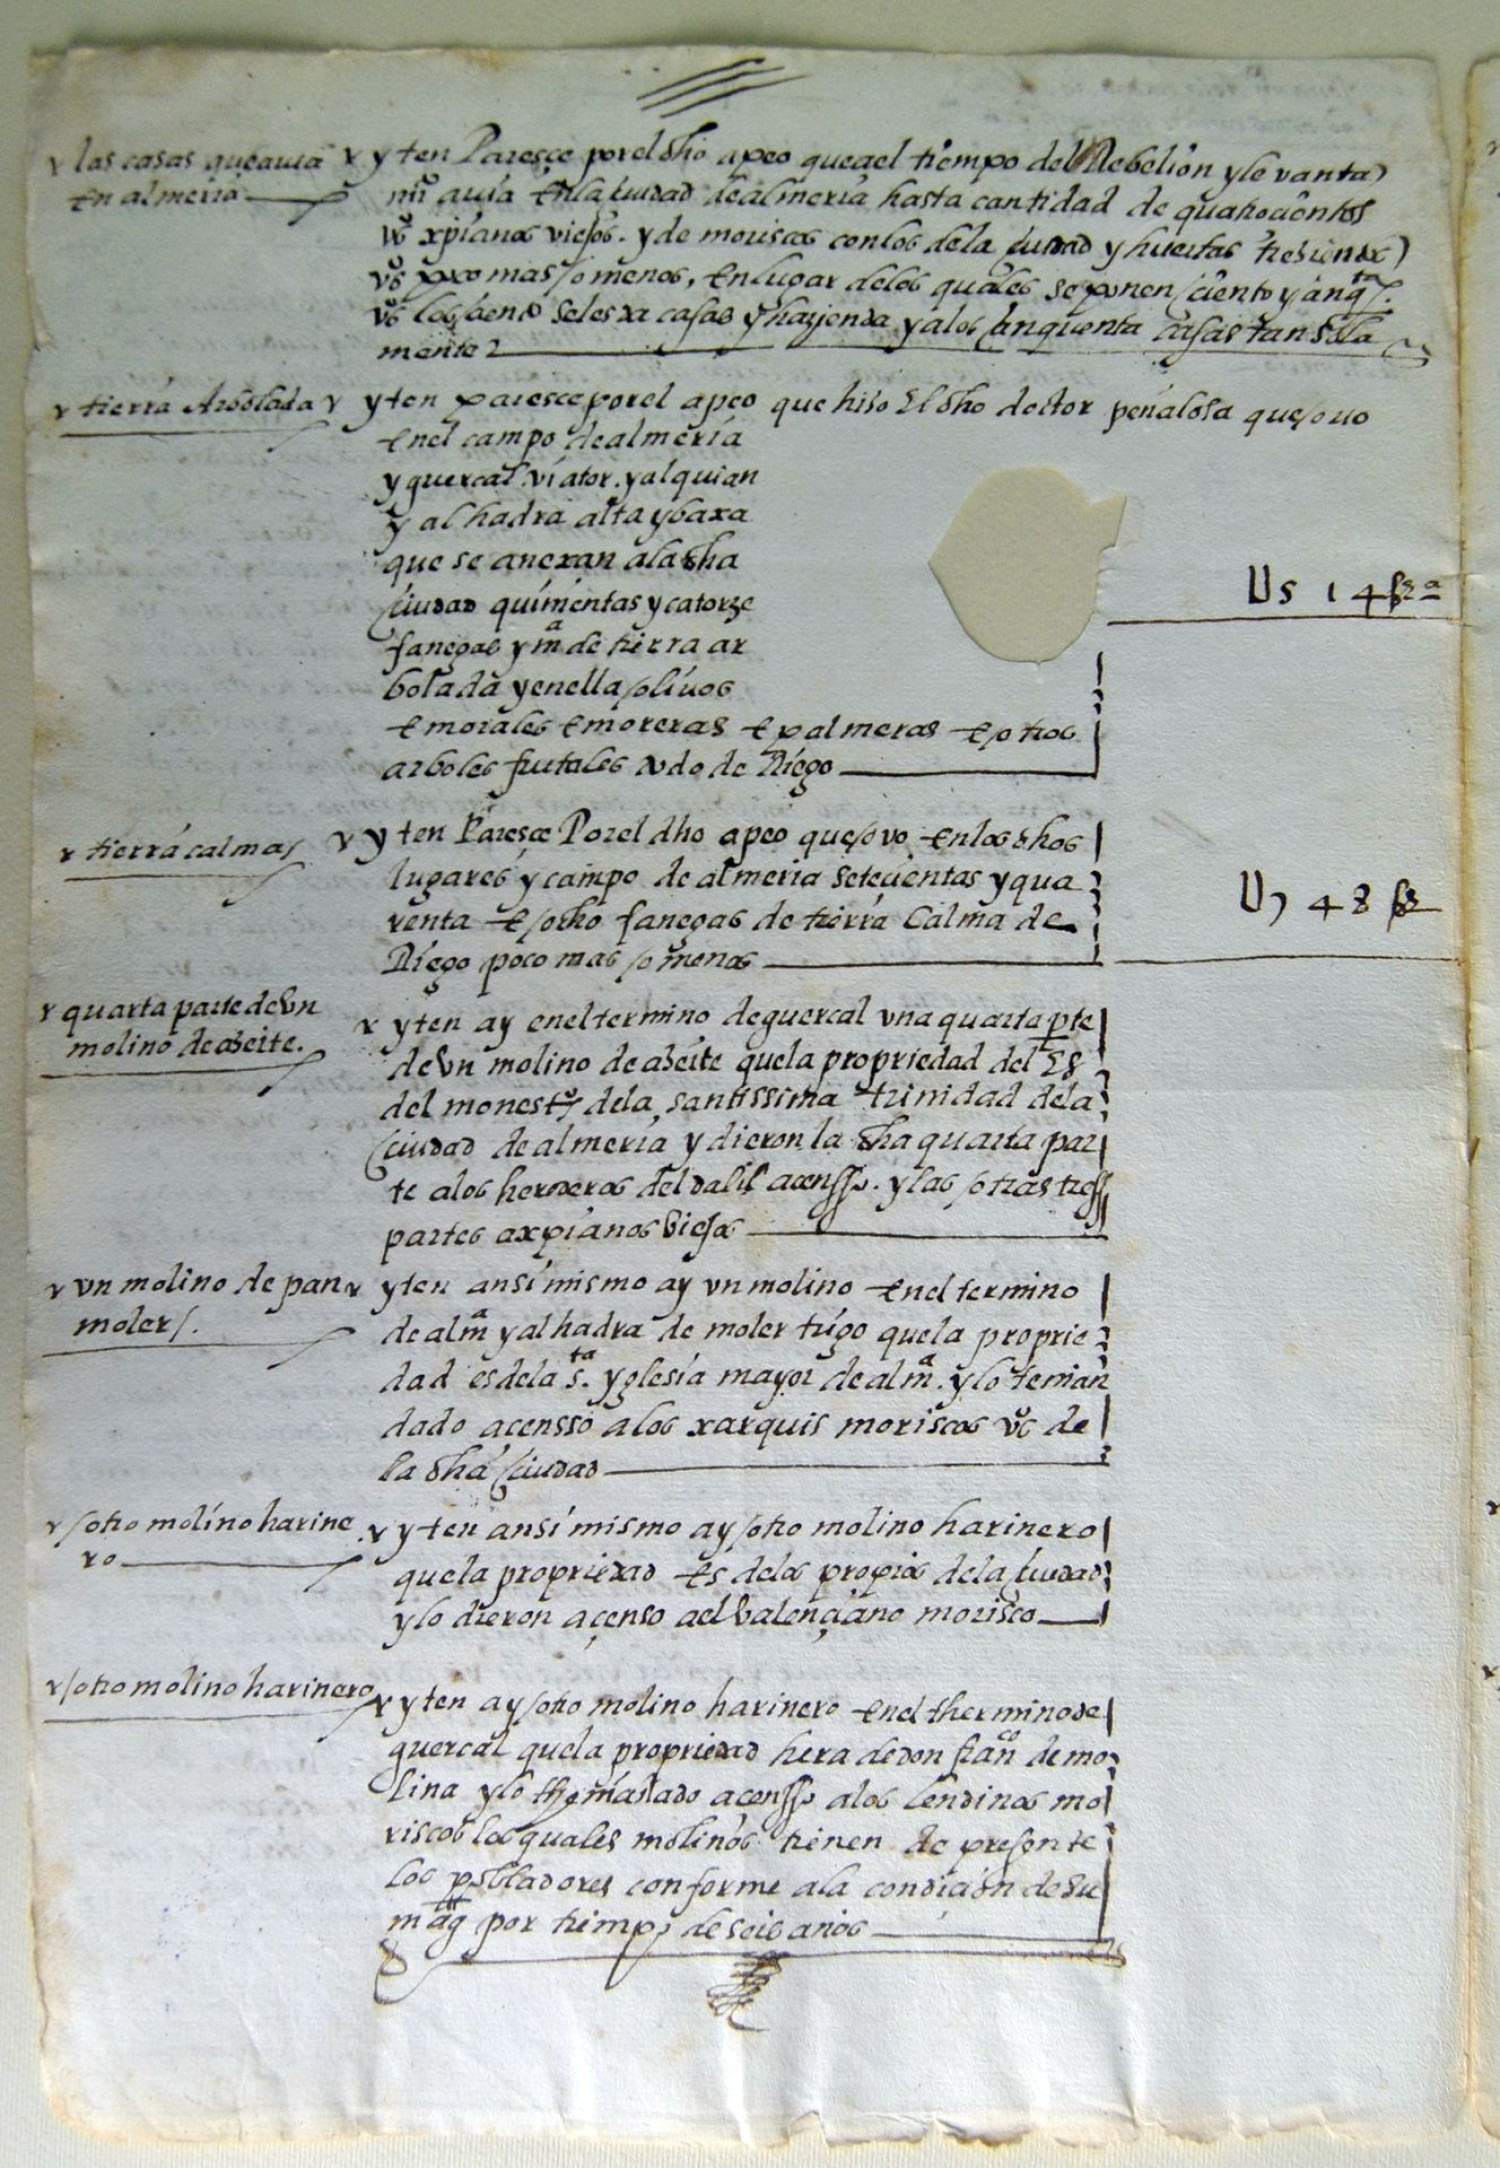 las casas que auia
en almeria
yten Paresçe por el dho apeo que a el tiempo del Rebelion y levanta
mi° auia en la çiudad de almeria hasta cantidad de quatroçientos
vs xpianos viejos. y de moriscos con los de la çiudad y huertas tresientos
vs poco mas o menos, en lugar de los quales se ponen çiento y çinqta.
vs los çiento se les da casas y hazienda y a los çinquenta casas tan sola
mente
tierra Arbolada
yten paresce por el apeo que hiso El dho doctor peñalosa que ovo
en el campo de almeria
y guercal. viator. y alquian
y alhadra alta y baxa
que se anexan a la dha
çiudad quinientas y catorze
fanegas y ma de tierra ar
bolada y en ella olivos
e morales e moreras e palmeras e otros
arboles frutales todo de Riego
U5 14 fsa
tierra calma
yten Paresçe Por el dho apeo que ovo en los dhos
lugares y campo de almeria seteçientas y qua
renta e ocho fanegas de tierra Calma de
Riego poco mas o menos
U7 48 fs
quarta parte de vn
molino de aseite.
yten ay en el termino de guercal vna quarta pte
de vn molino de aseite que la propriedad del Es
del monesto de la santissima trinidad de la
çiudad de almeria y dieron la dha quarta par
te a los herederos del dalil a censso. y las otras tres
partes a xpianos viejos
vn molino de pan
moler.
yten ansi mismo ay vn molino en el termino
de alma y alhadra de moler trigo que la proprie
dad es de la sta. yglesia mayor de alma. y lo tenian
dado a censso a los xarquis moriscos vs de
la dha çiudad
otro molino harine
ro
yten ansi mismo ay otro molino harinero
que la propriedad es de los propios de la çiudad
y lo dieron a çenso a el valençiano morisco
otro molino harinero
yten ay otro molino harinero en el thermino de
guercal que la propriedad hera de don franco de mo
lina y lo thenia dado a censso a los lendinos mo
riscos los quales molinos tienen de presente
los pobladores conforme a la condiçion de su
magd por tiempo de seis años